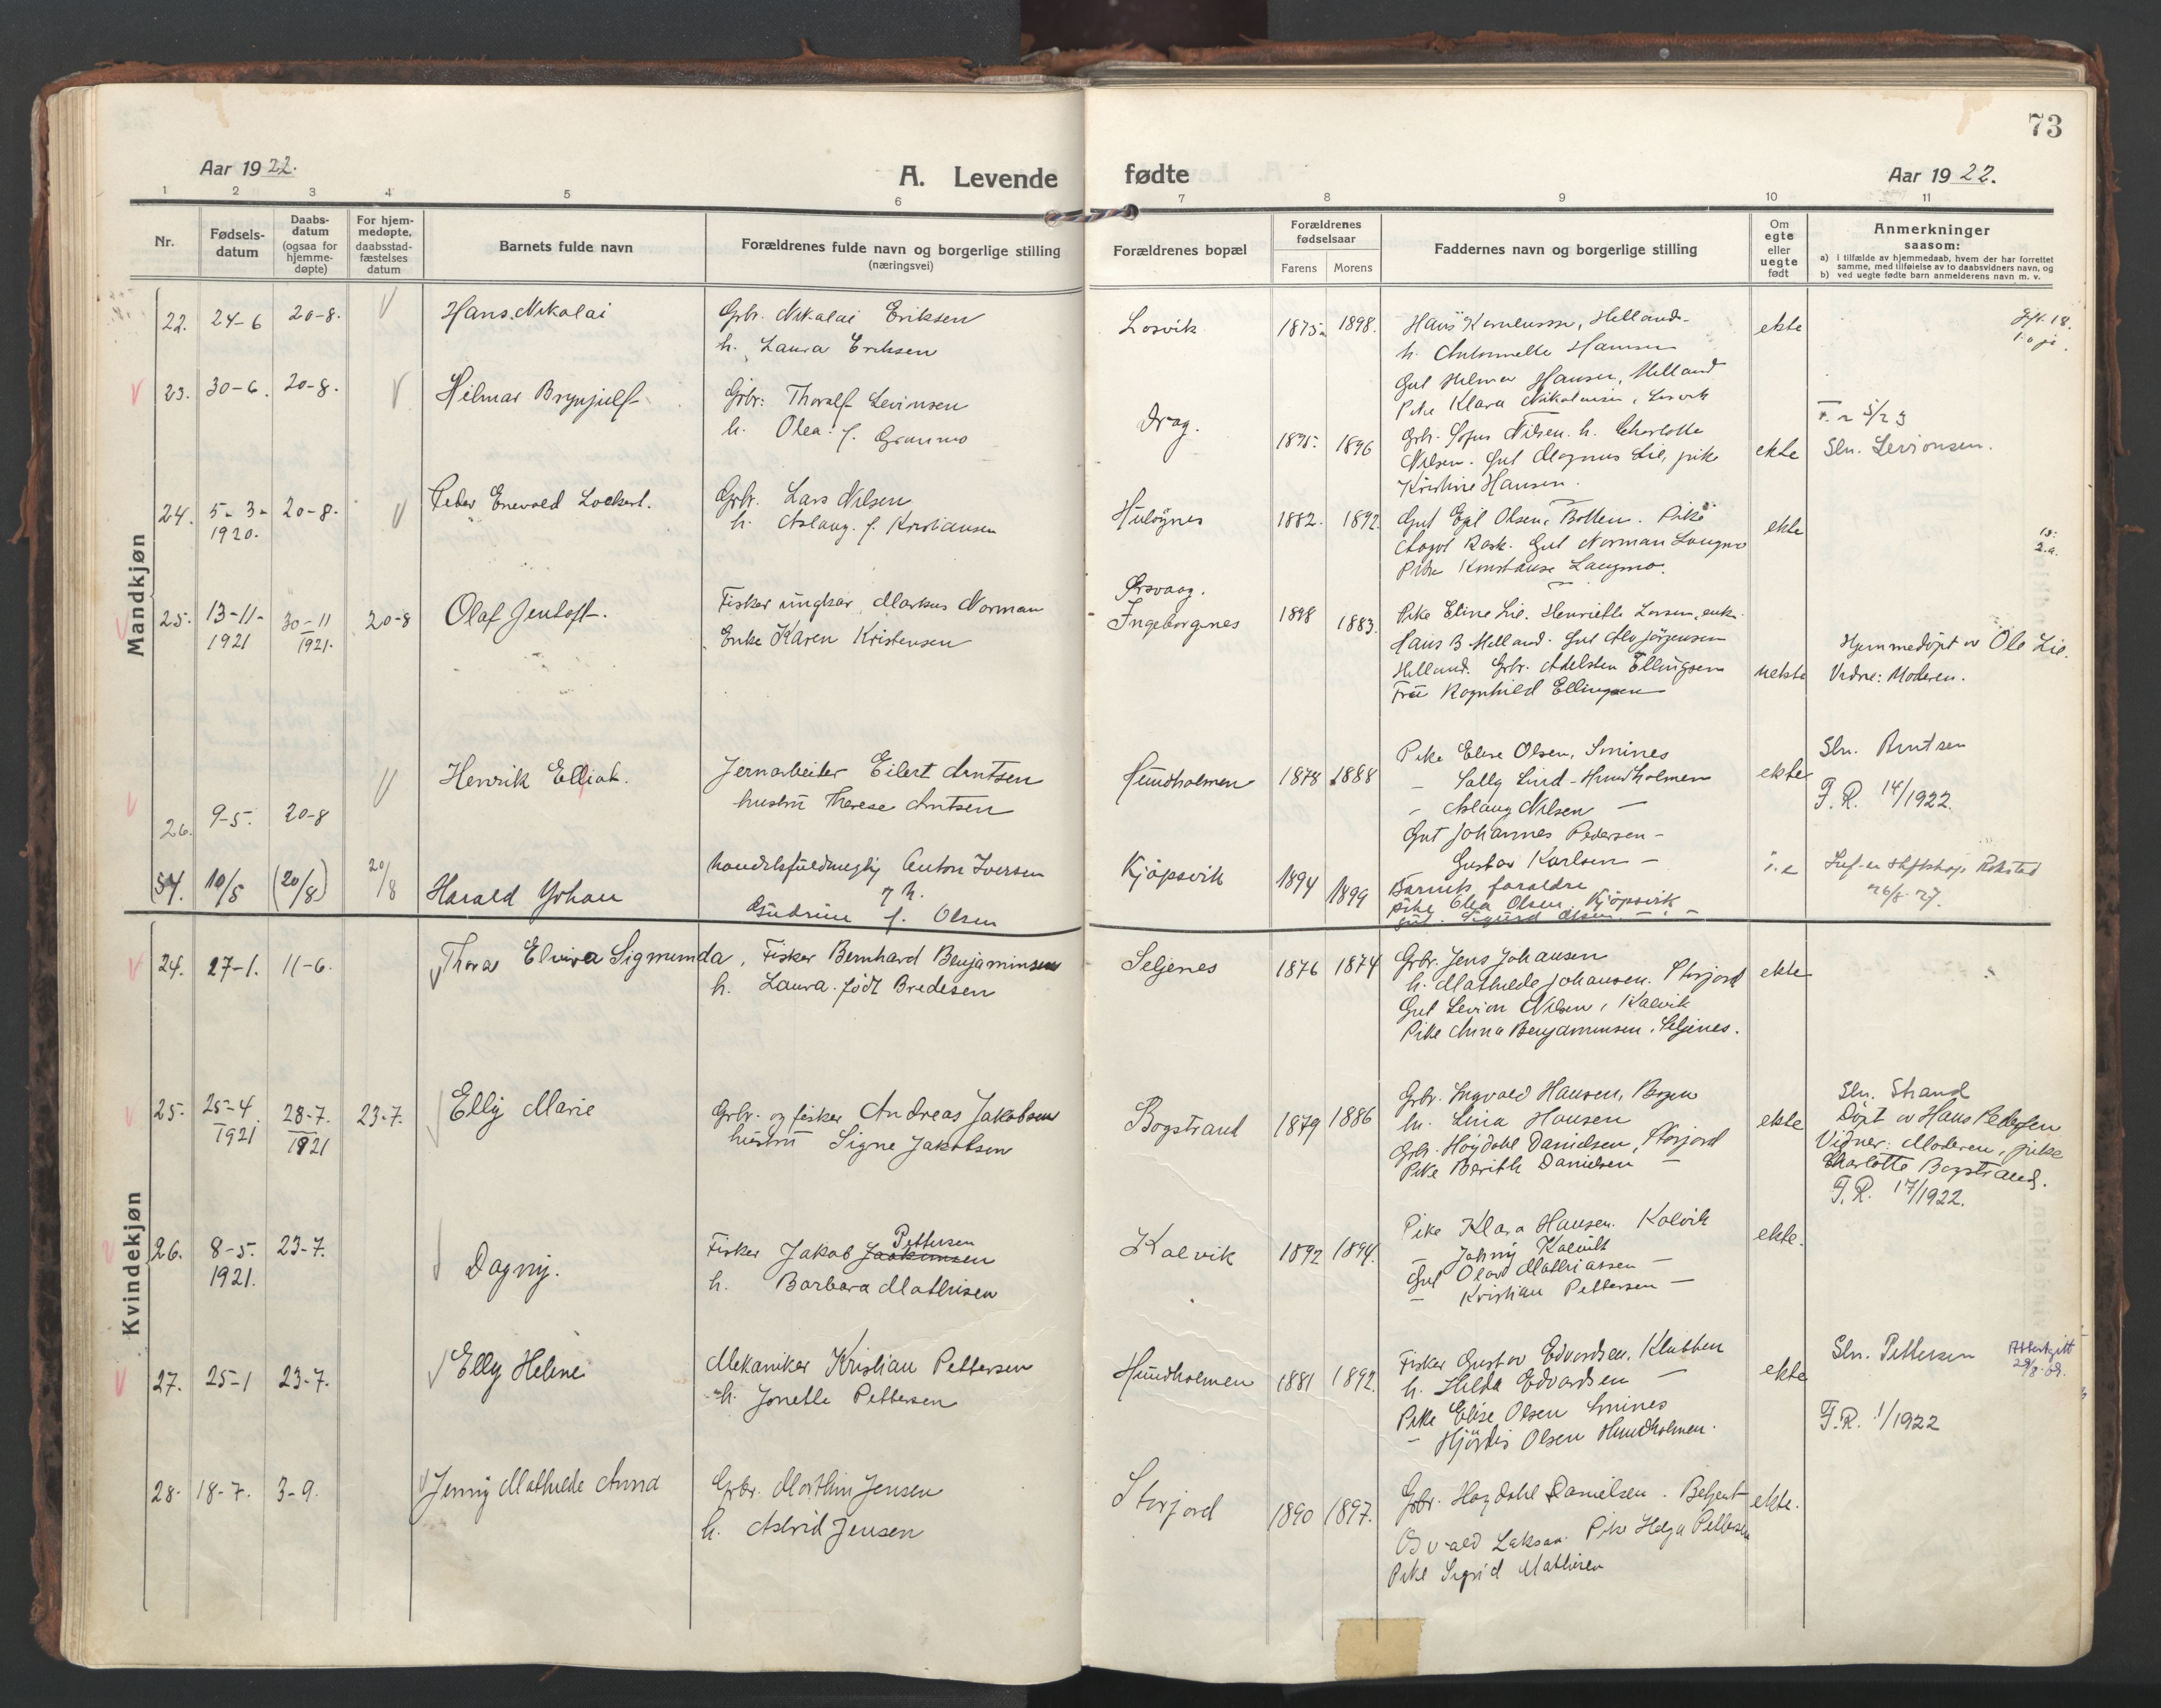 73
Aar 1922.
A. Levende
fødte
Aar 1922.
1 2 3 4 5 6 7 8 9 10 11
Nr.
Fødsels-
datum
Daabs-
datum
(ogsaa for
hjemme-
døpte)
For hjem-
medøpte,
daabsstad-
fæstelses
datum
Barnets fulde navn
Forældrenes fulde navn og borgerlige stilling
(næringsvei)
Forældrenes bopæl
Forældrenes
fødselsaar
Farens Morens
Faddernes navn og borgerlige stilling
Om
egte
eller
uegte
født
Anmerkninger
saasom:
a) i tilfælde av hjemmedaab, hvem der har forrettet
samme, med tilføielse av to daabsvidners navn, og
b) ved uegte fødte barn anmelderens navn m. v.
Mandkjøn
22. 24-6 20-8. Hans Nikolai
Grbr. Nikolai Eriksen
h. Laura Eriksen
Losvik 1875. 1898.
h. Antonette Hansen
ekte
23. 30-6. 20-8. Hilmar Brynjulf
Grbr: Thoralf Levinsen
h. Olea f. Granmo
Drag. 1895. 1896
Gut Hilmar Hansen, Helland
Pike Klara Nikolaisen, Losvik
Grbr. Sofus Nilsen. h. Charlotte
Nilsen. Gut Magnus Lie, pike
Kristine Hansen.
ekte
Sln. Levionsen.
24. 5-3- 20-8. Peder Enevold Lockert.
1920.
Grbr. Lars Nilsen
h. Aslaug. f. Kristiansen
Huløynes 1882. 1892.
Gut Egil Olsen, Botten. Pike
Aagot Rask. Gut Norman Langmo
Pike Konstanse Langmo.
ekte
25. 13-11- 30-11 20-8 Olaf Jentoft.
1921 1921.
Fisker ungkar Markus Norman
Enke Karen Kristensen
Ørsvaag.
Ingeborgnes 1898 1883.
Pike Eline Lie. Henriette Larsen, enke.
Hans B Helland. Gut Alv Jørgensen
Helland. Grbr. Adelsten Ellingsen
Fru Ragnhild Ellingsen
uekte
Hjemmedøpt av Ole Lie.
Vidne: Moderen.
26. 9-5. 20-8 Henrik Elliah.
Jernarbeiter Eilert Arntsen
hustru Therese Arntsen
Hundholmen 1878 1888
Pike Elise Olsen, Smines
– Sally Lind – Hundholmen
– Aslaug Nilsen –
Gut Johannes Pedersen –
Gustav Karlsen –
ekte
Sln. Arntsen
F. R. 14/1922.
57. 10/5 (20/8) 20/8 Harald Johan
Handelsfuldmægtig Anton Iversen
h.
Gudrun f. Olsen
Kjøpsvik 1894 1899
Barnets foreldre
pike Olea Olsen, Kjøpsvik
gut. Sigurd Olsen – –
26/8-27.
Kvindekjøn
24. 27-1. 11-6. Thora Elvira Sigmunda,
Fisker Bernhard Benjaminsen
h. Laura født Bredesen
Seljenes 1876 1874
Grbr. Jens Johansen
h. Mathilde Johansen. Storjord
Gut Levion Nilsen, Kalvik
Pike Anna Benjaminsen, Seljenes.
ekte
25. 25-4 28-7. 23-7. Elly Marie
1921 1921
Grbr. og fisker Andreas Jakobsen
hustru Signe Jakobsen
Bogstrand 1879 1886
Grbr. Ingvald Hansen, Bogen
h. Lina Hansen
Grbr. Høydahl Danielsen, Storjord
Pike Berith Danielsen –
ekte
Sln. Strand
Døpt av Hans Pedersen
Vidner: Moderen, pike
Charlotte Bogstrand.
F. R. 17/1922.
26. 8-5. 23-7. Dagny.
1921.
Pettersen
Fisker Jakob Joakimsen
h. Barbara Mathisen
Kalvik 1892 1894.
Pike Klara Hansen. Kalvik
– Johny Kalvik
Gut Olav Mathiassen –
– Kristian Pettersen –
ekte.
27. 25-1 23-7. Elly Helene
Mekaniker Kristian Pettersen
h. Jonette Pettersen
Hundholmen 1881 1892.
Fisker Gustav Edvardsen, Klubben
h. Hilda Edvardsen –
Pike Elise Olsen Smines
– Hjørdis Olsen Hundholmen.
ekte
Sln. Pettersen
F.R. 1/1922
28. 18-7. 3-9. Jenny Mathilde Anna
Grbr. Morthin Jensen
h. Astrid Jensen
Storjord 1890 1897.
Grbr. Høydahl Danielsen. Betjent
Osvald Laksaa. Pike Helga Pettersen
Pike Sigrid Mathisen
ekte.